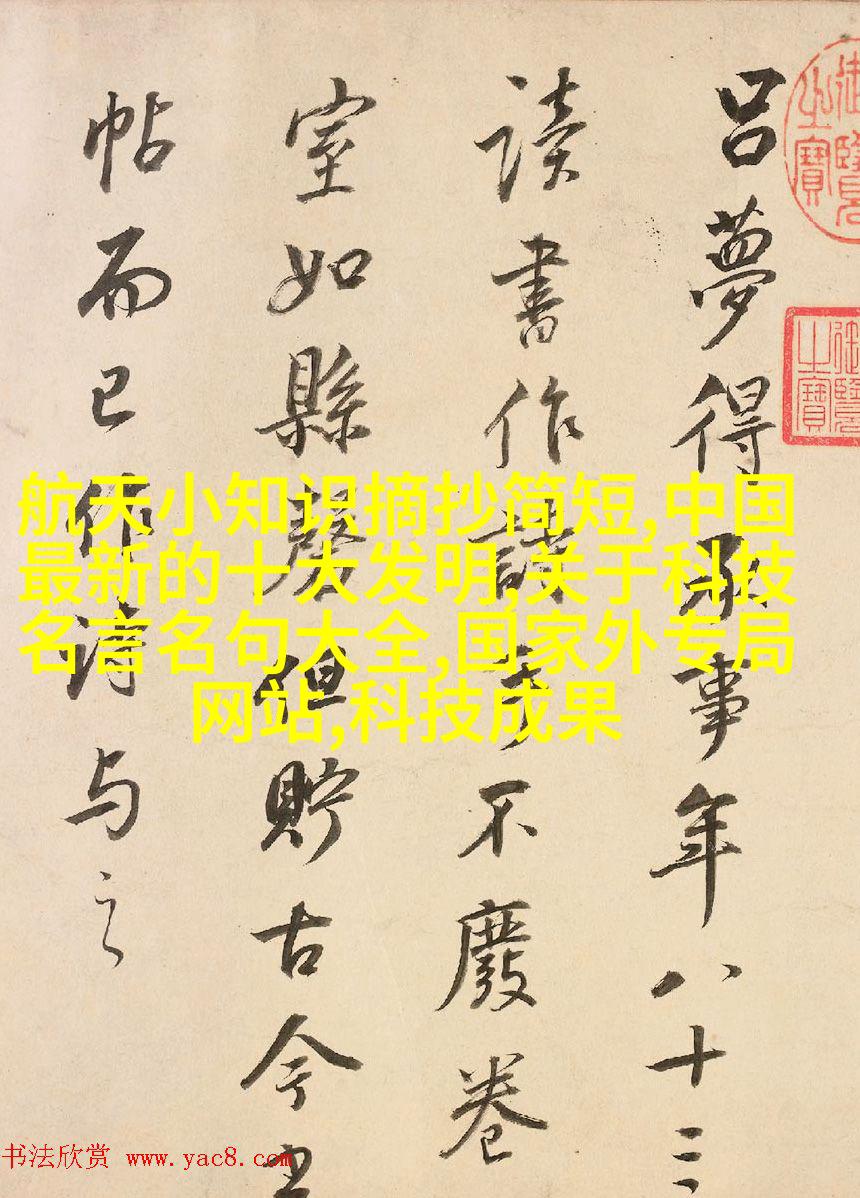 吕夢得承事年八十三
讀書作詩手不廢卷
室如縣磬但貯古今
帖而已作詩与之
御覽之寶
御覽之寶
航天小知识摘抄简短,中国
最新的十大发明,关于科技
名言名句大全,国家外专局
网站,科技成果
书法欣赏 www.yac8.com